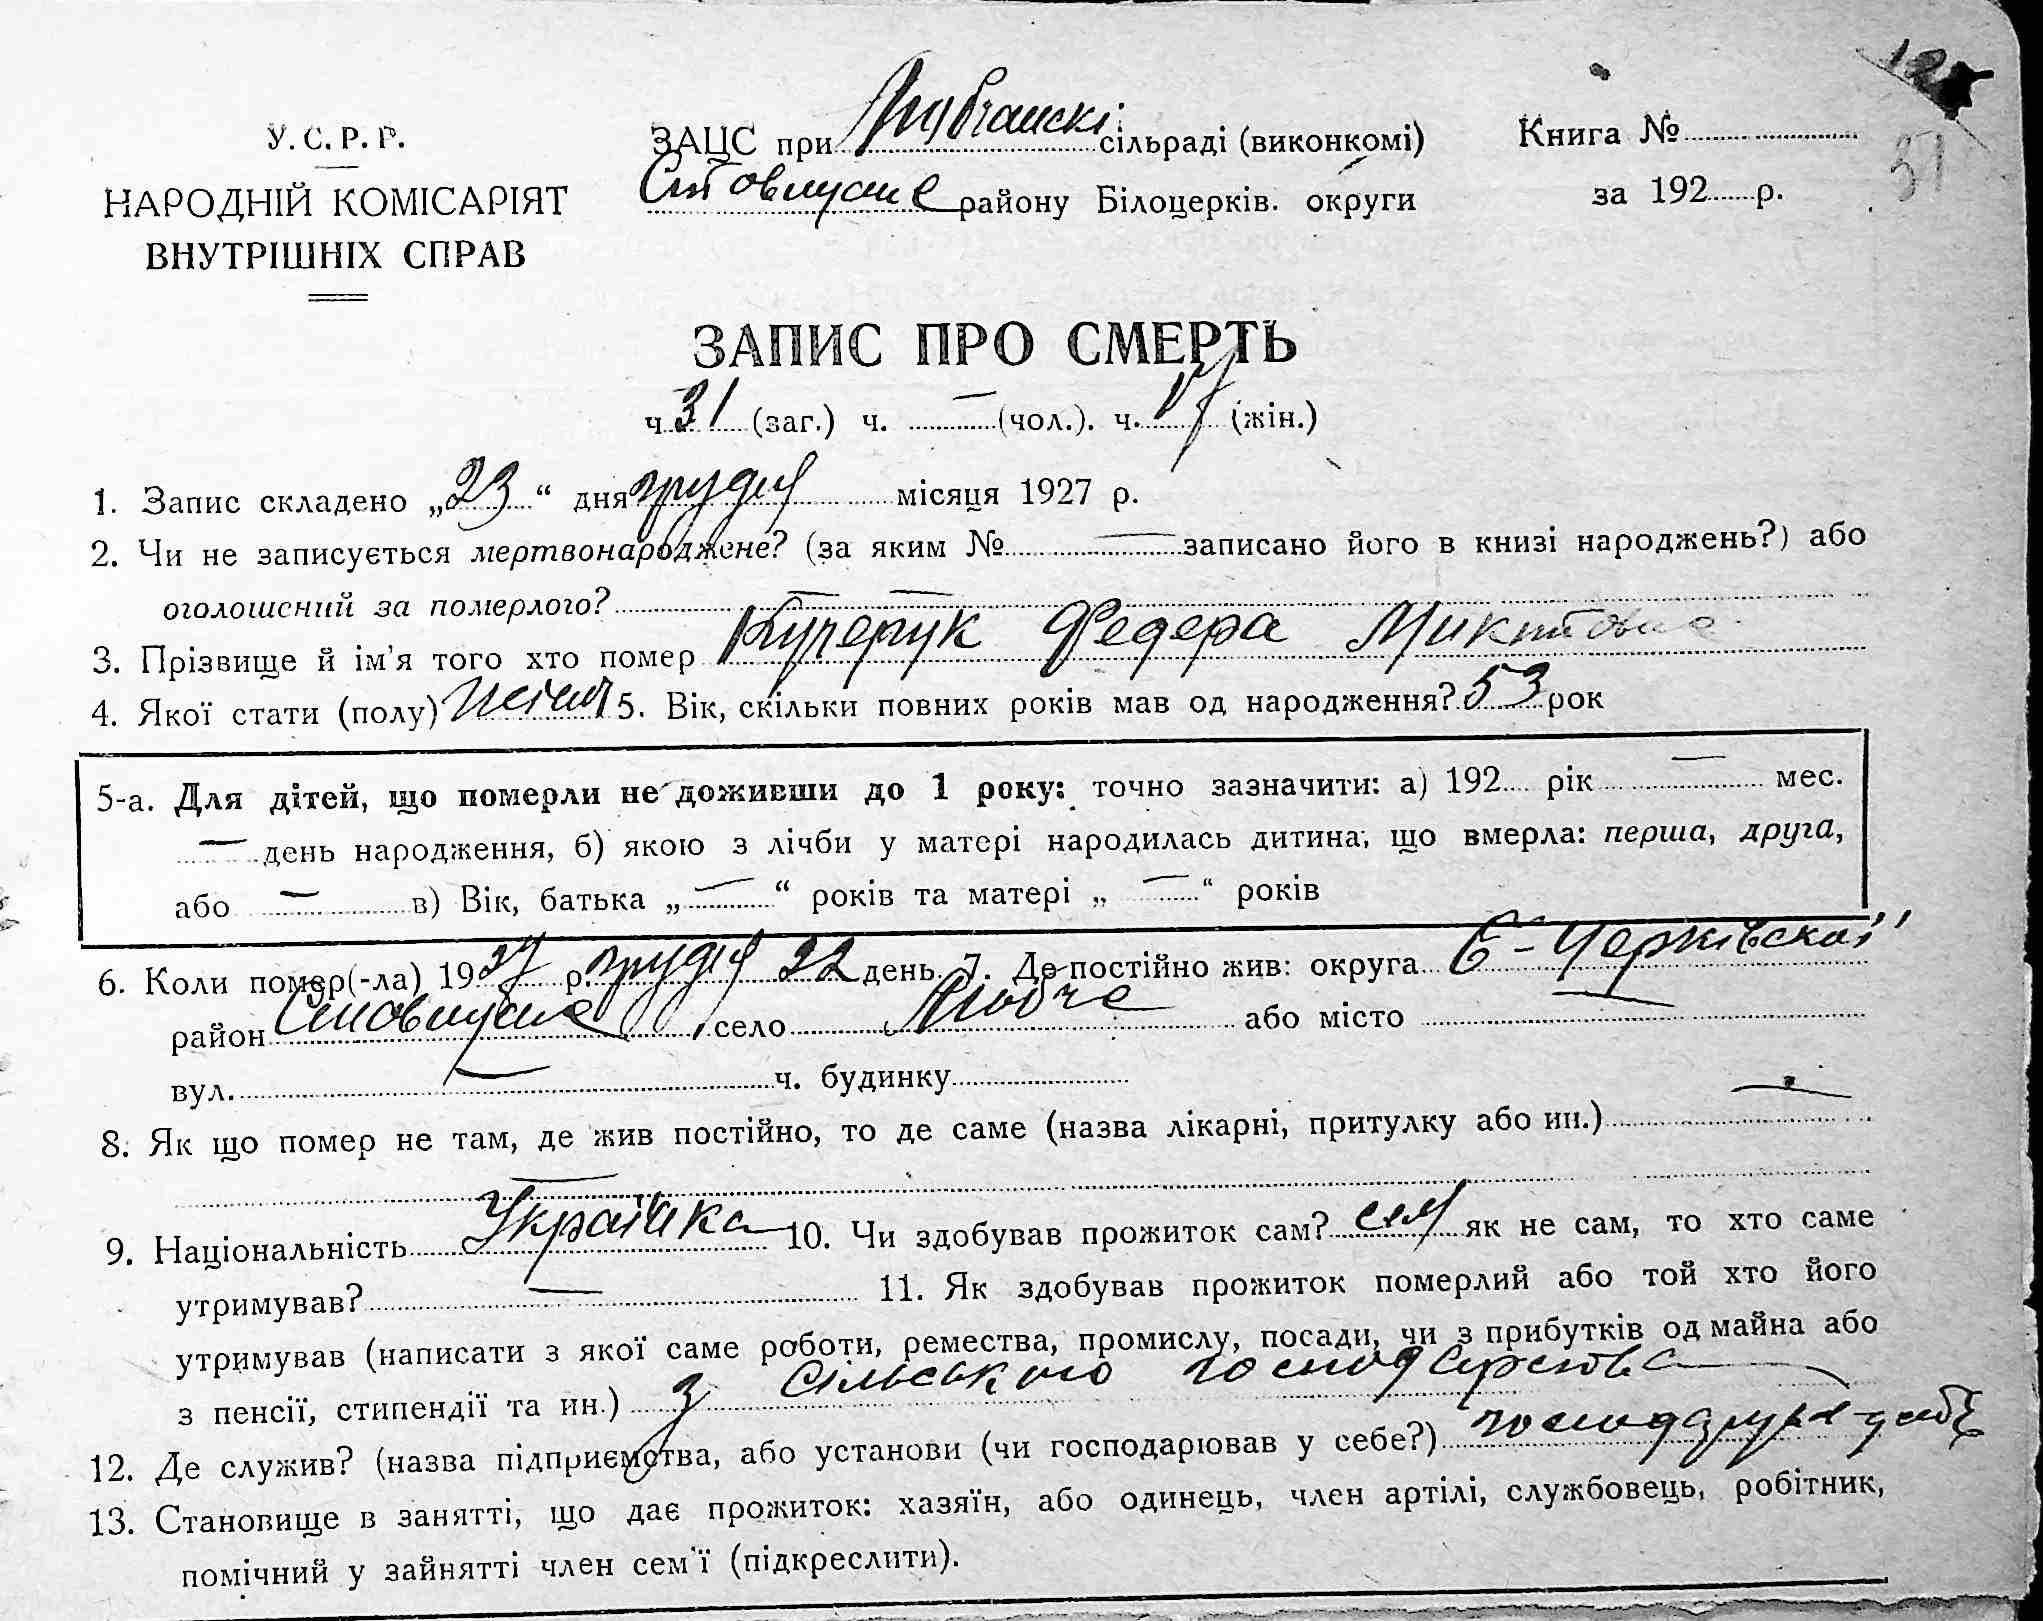 У. С. Р. Р.
НАРОДНІЙ КОМІСАРІЯТ
ВНУТРІШНІХ СПРАВ
ЗАЦС при сільраді (виконкомі)
району Білоцерків. округи
Книга №
за 192 р.
ЗАПИС ПРО СМЕРТЬ
ч. 31 (заг.) ч. — (чол.). ч. 17 (жін.)
1. Запис складено „23“ дня грудня місяця 1927 р.
2. Чи не записується мертвонароджене? (за яким № — записано його в книзі народжень?) або
оголошений за померлого? — —
3. Прізвище й ім'я того хто помер Кучерук Федера Микитовна
4. Якої стати (полу) 5. Вік, скільки повних років мав од народження? 53 рок
5-а. Для дітей, що померли не доживши до 1 року: точно зазначити: а) 192 рік — мес.
— день народження, б) якою з лічби у матері народилась дитина, що вмерла: перша, друга,
або — в) Вік, батька „—“ років та матері „—“ років
6. Коли помер(-ла) 1927 р. грудня 22 день. 7. Де постійно жив: округа Б-Церківської
район село або місто —
вул. — ч. будинку
8. Як що помер не там, де жив постійно, то де саме (назва лікарні, притулку або ин.) —
—
9. Національність Українка 10. Чи здобував прожиток сам? сам як не сам, то хто саме
утримував? — 11. Як здобував прожиток померлий або той хто його
утримував (написати з якої саме роботи, ремества, промислу, посади, чи з прибутків од майна або
з пенсії, стипендії та ин.) З сільського господарства
12. Де служив? (назва підприємства, або установи (чи господарював у себе?)
13. Становище в занятті, що дає прожиток: хазяїн, або одинець, член артілі, службовець, робітник,
помічний у зайнятті член сем'ї (підкреслити).